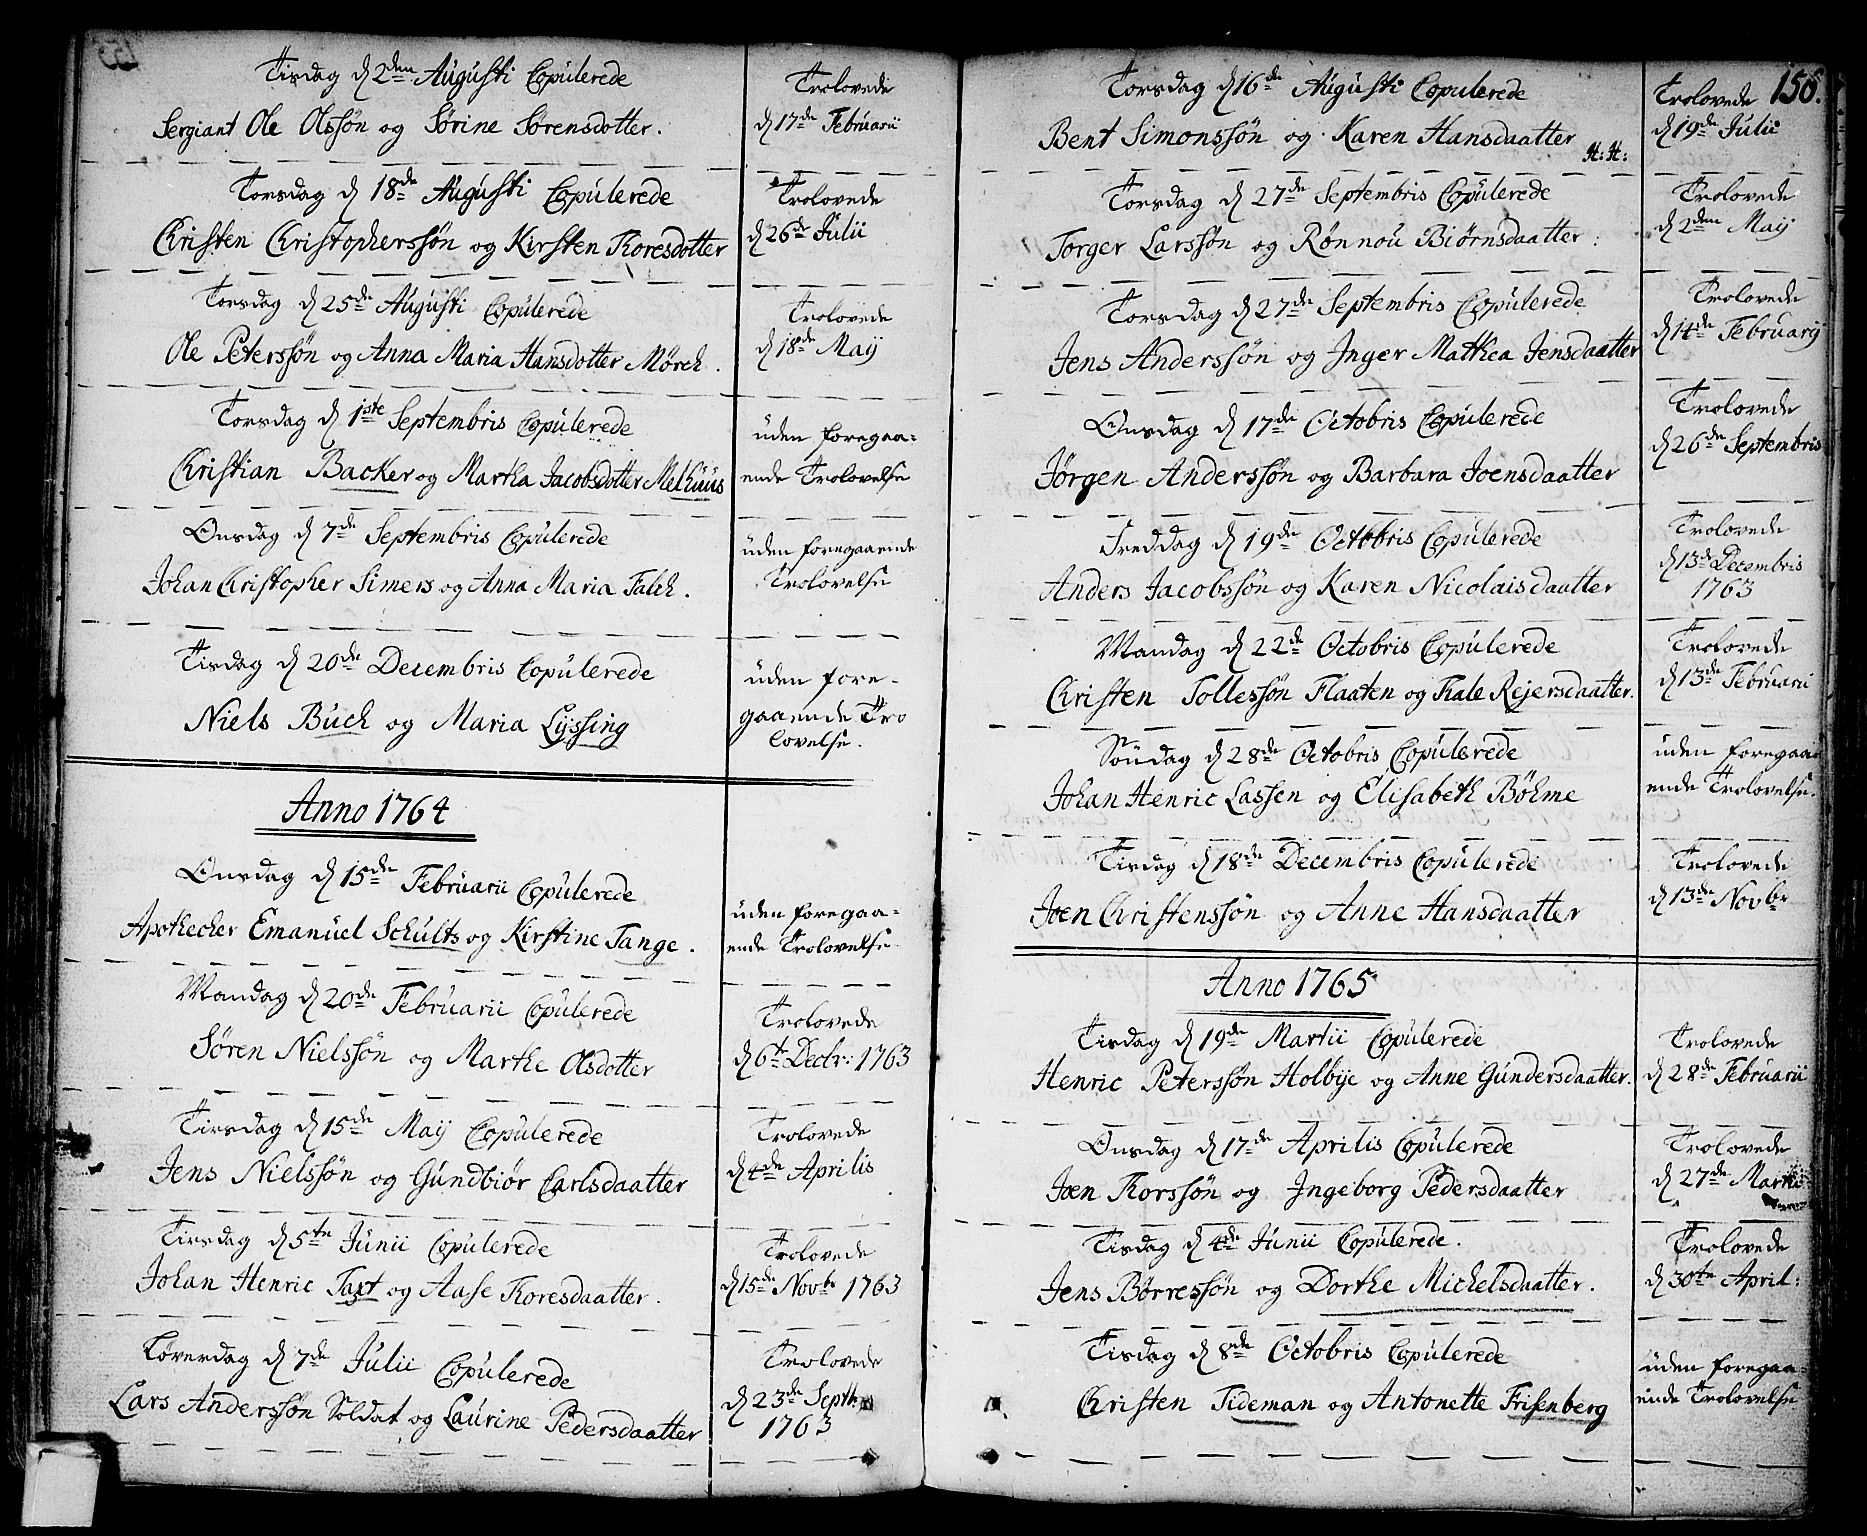 Tisdag d 2den Augusti Copulerede
Sergiant Ole Olssøn og Sørine Sørensdotter.
Trolovede
d 17de Februarii
Torsdag d 18de Augusti Copulerede
Christen Christopherssøn og Kirsten Toresdotter
Trolovede
d 26de Julii
Torsdag d 25de Augusti Copulerede
Ole Peterssøn og Anna Maria Hansdotter Mørch.
Trolovede
d 18de Maij
Torsdag d 1ste Septembris Copulerede
Christian Backer og Martha Jacobsdotter Melhuus
uden foregaa=
ende Trolovelse
Onsdag d 7de Septembris Copulerede
Johan Christopher Simers og Anna Maria Falch.
uden foregaaende
Trolovelse
Tisdag d 20de Decembris Copulerede
Niels Buch og Maria Lyssing
uden fore-
gaaende Tro
lovelse.
Anno 1764
Onsdag d 15de Februarii Copulerede
Apothecher Emanuel Schults og Kirstine Tange.
uden foregaa=
ende Trolovelse
Mandag d 20de Februarii Copulerede
Søren Nielssøn og Marthe Olsdotter
Trolovede
d 6te Decbr: 1763
Tirsdag d 15de Maij Copulerede
Jens Nielssøn og Gundbiør Carlsdaatter
Trolovede
d 4de Aprilis
Tirsdag d 5te Junii Copulerede
Johan Henric Taxt og Aase Toresdaatter.
Trolovede
d 15de Novbr 1763
Løverdag d 7de Julii Copulerede
Lars Anderssøn Soldat og Laurine Pedersdaatter
Trolovede
d 23de Septbr
1763
156.
Torsdag d 16de Augusti Copulerede
Bent Simonssøn og Karen Hansdaatter
H: H:
Trolovede
d 19de Julii
Torsdag d 27de Septembris Copulerede
Torger Larssøn og Rønnou Biørnsdaatter:
Trolovede
d 2den Maij
Torsdag d 27de Septembris Copulerede
Jens Anderssøn og Inger Mathea Jensdaatter
Trolovede
d 14de Februarij
Onsdag d 17de Octobris Copulerede
Jørgen Anderssøn og Barbara Joensdaatter
Trolovede
d 26de Septembris
Freddag d 19de Octobris Copulerede
Anders Jacobssøn og Karen Nicolaisdaatter
Trolovede
d 13de Decembris
1763
Mandag d 22de Octobris Copulerede
Christen Tollessøn Flaaten og Kale Rejersdaatter.
Trolovede
d 13de Februarii
Søndag d 28de Octobris Copulerede
Johan Henric Lassen og Elisabeth Bøhme
uden foregaa
ende Trolovelse.
Tisdag d 18de Decembris Copulerede
Joen Christenssøn og Anne Hansdaatter
Trolovede
d 13de Novbr
Anno 1765
Tisdag d 19de Martii Copulerede
Henric Peterssøn Holbye og Anne Gundersdaatter.
Trolovede
d 28de Februarii
Onsdag d 17de Aprilis Copulerede
Joen Korssøn og Ingeborg Pedersdaatter
Trolovede
d 27de Martii
Tisdag d 4de Junii Copulerede.
Jens Børressøn og Dorthe Michelsdaatter.
Trolovede
d 30te April:
Tisdag d 8de Octobris Copulerede
Christen Tideman og Antonette Frisenberg
uden foregaa=
ende Trolovelse